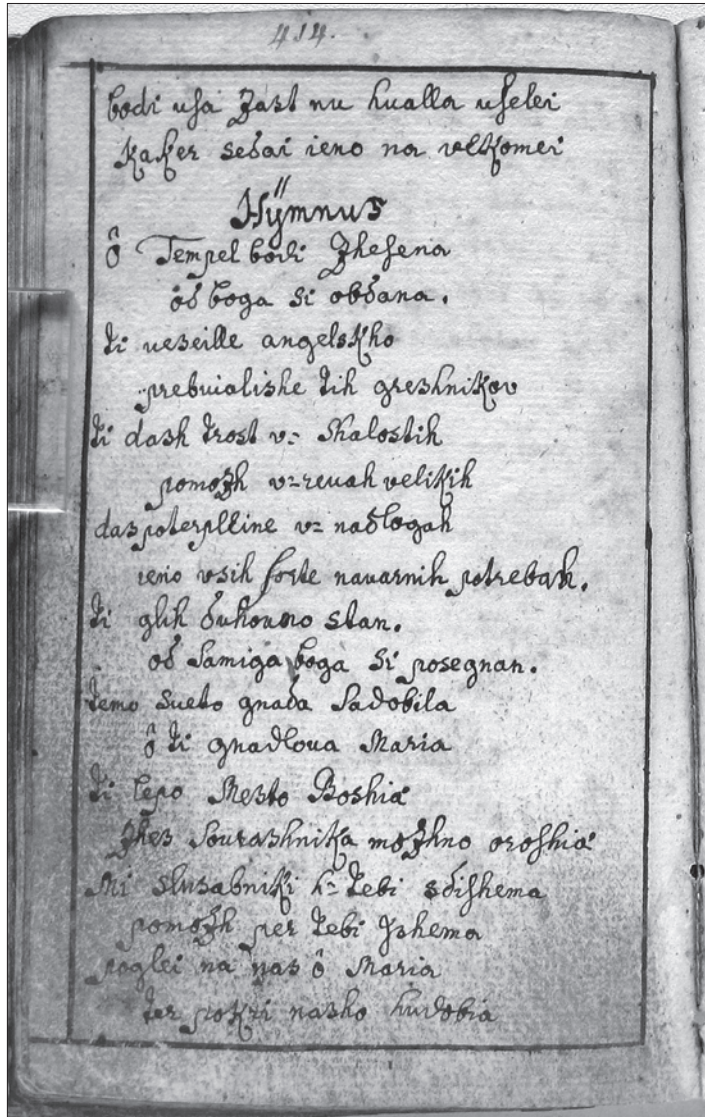 414.
bodi usa Zast nu hualla uselei
kaker sedai ieno na velkomei
Hÿmnus
ô Tempel bodi Zhesena
od boga si obdana.
ti veseille angelskho
prebuialishe tih greshnikov
ti dash trost v= shalostih
pomozh v=reuah velikih
das poterplline v= nadlogah
ieno vsih forte navarnih potrebah.
ti glih duhouno stan.
od samiga boga si posegnan.
temo sueto gnada sadobila
ô ti gnadloua Maria
ti lepo Mesto Boshia
Zhes sourashnika mozhno oroshia
Mi slusabniki k= tebi sdishema
pomozh per tebi Ishema
poglei na nas ô Maria
ter pokri nasho hudobia